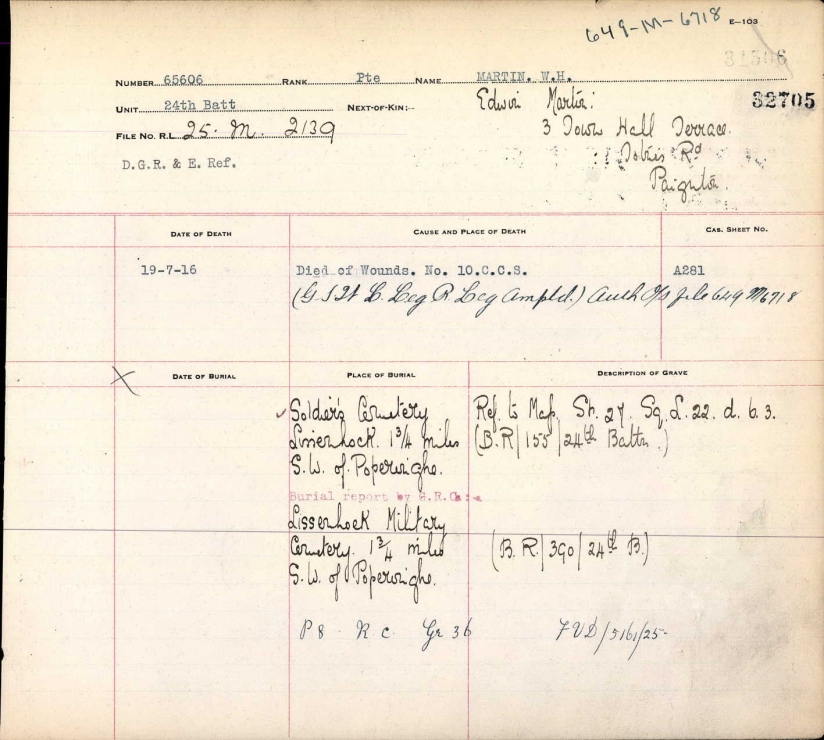 649-M-6718 E-103
31506
NUMBER 65606 RANK Pte NAME MARTIN. W.H.
32705
UNIT 24th Batt NEXT-OF-KIN:- Edwin Martin:
FILE NO. R.L. 25. M. 2139 3 Town Hall Terrace.
D.G.R. & E. Ref. Rd
Paignton.
DATE OF DEATH CAUSE AND PLACE OF DEATH CAS. SHEET NO.
19-7-16 Died of Wounds. No. 10.C.C.S. A281
(G.S.W L. Leg R. Leg Amptd.) Auth O/S file 649 M6718
X DATE OF BURIAL PLACE OF BURIAL DESCRIPTION OF GRAVE
Soldier's Cemetery Ref. to Map. Sh. 27. Sq. L. 22. d. 6. 3.
Lissenhoek. 1 3/4 miles (B.R/155/24th Battn.)
S.W. of Poperinghe.
Burial report by G.R.C.:-
Lissenhoek Military
Cemetery. 1 3/4 miles (B.R/390/24th B.)
S.W. of Poperinghe.
P 8 R C Gr 36 FVD/5161/25-